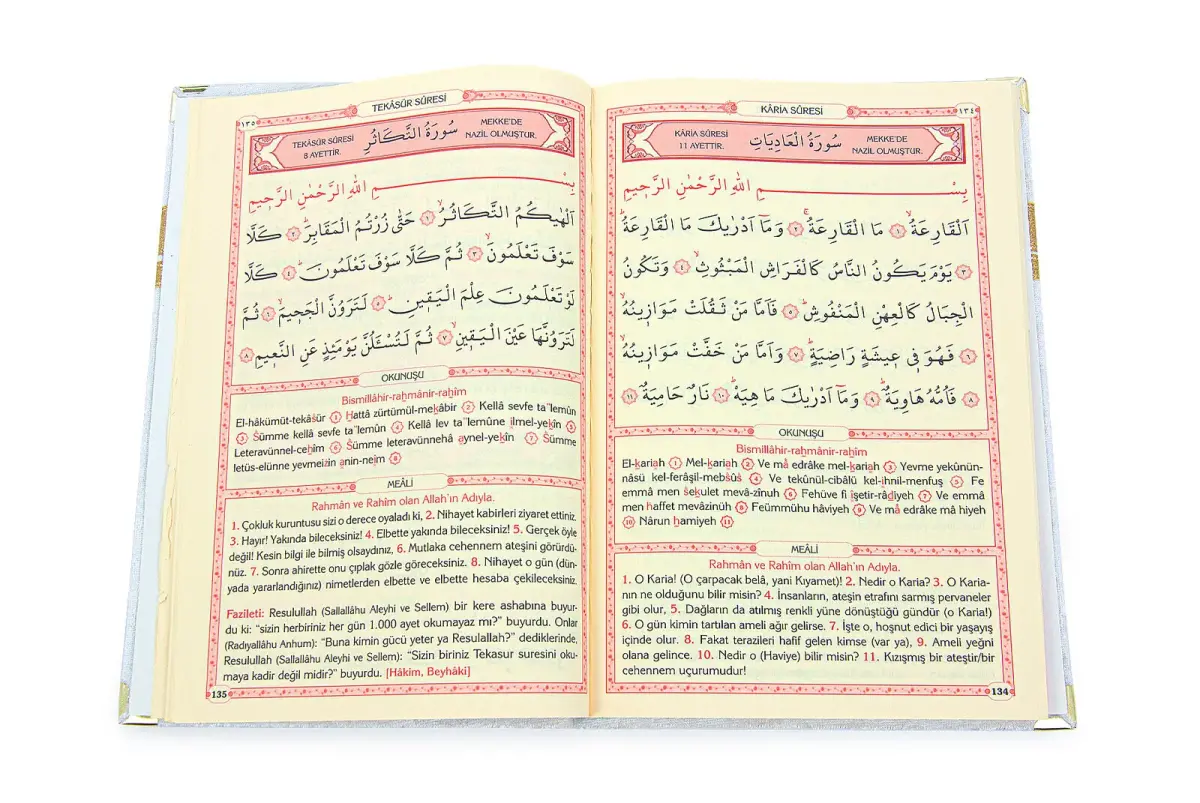 KÂRİA SÛRESİ
١٣٤
KÂRİA SÛRESİ
11 AYETTİR.
سُورَةُ الْعَادِيَاتِ
MEKKE'DE
NAZİL OLMUŞTUR.
بِسْــــــــــــــــمِ اللهِ الرَّحْمٰنِ الرَّحٖيمِ
اَلْقَارِعَةُۙ ﴿١﴾ مَا الْقَارِعَةُۚ ﴿٢﴾ وَمَٓا اَدْرٰيكَ مَا الْقَارِعَةُؕ
﴿٣﴾ يَوْمَ يَكُونُ النَّاسُ كَالْفَرَاشِ الْمَبْثُوثِۙ ﴿٤﴾ وَتَكُونُ
الْجِبَالُ كَالْعِهْنِ الْمَنْفُوشِؕ ﴿٥﴾ فَاَمَّا مَنْ ثَقُلَتْ مَوَازٖينُهُۙ
﴿٦﴾ فَهُوَ فٖي عٖيشَةٍ رَاضِيَةٍؕ ﴿٧﴾ وَاَمَّا مَنْ خَفَّتْ مَوَازٖينُهُۙ
﴿٨﴾ فَاُمُّهُ هَاوِيَةٌؕ ﴿٩﴾ وَمَٓا اَدْرٰيكَ مَا هِيَهْؕ ﴿١٠﴾ نَارٌ حَامِيَةٌ ﴿١١﴾
OKUNUŞU
Bismillâhir-rahmânir-rahîm
El-kariah (1) Mel-kariah (2) Ve mâ edrâke mel-kariah (3) Yevme yekûnün-
nâsü kel-ferâşil-mebsûs (4) Ve tekûnül-cibâlü kel-ihnil-menfuş (5) Fe
emmâ men sekulet mevâ-zînuh (6) Fehüve fî îşetir-râdiyeh (7) Ve emmâ
men haffet mevâzinüh (8) Feümmühu hâviyeh (9) Ve mâ edrâke mâ hiyeh
(10) Nârun hamiyeh (11)
MEÂLİ
Rahmân ve Rahîm olan Allah'ın Adıyla.
1. O Karia! (O çarpacak belâ, yani Kıyamet)! 2. Nedir o Karia? 3. O Karia-
nın ne olduğunu bilir misin? 4. İnsanların, ateşin etrafını sarmış pervaneler
gibi olur, 5. Dağların da atılmış renkli yüne dönüştüğü gündür (o Karia!)
6. O gün kimin tartılan ameli ağır gelirse. 7. İşte o, hoşnut edici bir yaşayış
içinde olur. 8. Fakat terazileri hafif gelen kimse (var ya), 9. Ameli yeğni
olana gelince. 10. Nedir o (Haviye) bilir misin? 11. Kızışmış bir ateştir/bir
cehennem uçurumudur!
134
TEKÂSÜR SÛRESİ
١٣٥
TEKÂSÜR SÛRESİ
8 AYETTİR.
سُورَةُ التَّكَاثُرِ
MEKKE'DE
NAZİL OLMUŞTUR.
بِسْــــــــــــــــمِ اللهِ الرَّحْمٰنِ الرَّحٖيمِ
اَلْهٰيكُمُ التَّكَاثُرُۙ ﴿١﴾ حَتّٰى زُرْتُمُ الْمَقَابِرَؕ ﴿٢﴾ كَلَّا
سَوْفَ تَعْلَمُونَۙ ﴿٣﴾ ثُمَّ كَلَّا سَوْفَ تَعْلَمُونَؕ ﴿٤﴾ كَلَّا
لَوْ تَعْلَمُونَ عِلْمَ الْيَقٖينِؕ ﴿٥﴾ لَتَرَوُنَّ الْجَحٖيمَۙ ﴿٦﴾ ثُمَّ
لَتَرَوُنَّهَا عَيْنَ الْيَقٖينِۙ ﴿٧﴾ ثُمَّ لَتُسْـَٔلُنَّ يَوْمَئِذٍ عَنِ النَّعٖيمِ ﴿٨﴾
OKUNUŞU
Bismillâhir-rahmânir-rahîm
El-hâkümüt-tekâsür (1) Hattâ zürtümül-mekâbir (2) Kellâ sevfe ta'lemûn
(3) Sümme kellâ sevfe ta'lemûn (4) Kellâ lev ta'lemûne ilmel-yekîn (5)
Leteravünnel-cehîm (6) Sümme leteravünnehâ aynel-yekîn (7) Sümme
letüs-elünne yevmeizin anin-neîm (8)
MEÂLİ
Rahmân ve Rahîm olan Allah'ın Adıyla.
1. Çokluk kuruntusu sizi o derece oyaladı ki, 2. Nihayet kabirleri ziyaret ettiniz.
3. Hayır! Yakında bileceksiniz! 4. Elbette yakında bileceksiniz! 5. Gerçek öyle
değil! Kesin bilgi ile bilmiş olsaydınız, 6. Mutlaka cehennem ateşini görürdü-
nüz. 7. Sonra ahirette onu çıplak gözle göreceksiniz. 8. Nihayet o gün (dün-
yada yararlandığınız) nimetlerden elbette ve elbette hesaba çekileceksiniz.
Fazileti: Resulullah (Sallallâhu Aleyhi ve Sellem) bir kere ashabına buyur-
du ki: "sizin herbiriniz her gün 1.000 ayet okumayaz mı?" buyurdu. Onlar
(Radıyallâhu Anhum): "Buna kimin gücü yeter ya Resulallah?" dediklerinde,
Resulullah (Sallallâhu Aleyhi ve Sellem): "Sizin biriniz Tekasur suresini oku-
maya kadir değil midir?" buyurdu. [Hâkim, Beyhâki]
135